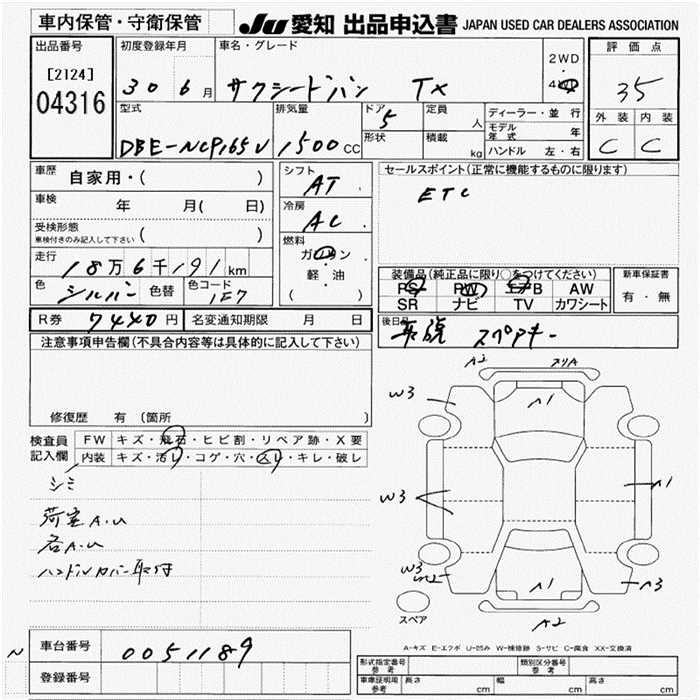 車内保管・守衛保管
JU 愛知 出品申込書 JAPAN USED CAR DEALERS ASSOCIATION
出品番号
[2124]
04316
初度登録年月
30 6月
車名・グレード
サクシードバン TX
2WD
・
4WD
評価点
35
外装 内装
C C
型式
DBE-NCP165V
排気量
1500CC
ドア
5
形状
定員
人
積載
kg
ディーラー・並行
モデル年式 年
ハンドル 左・右
車歴
自家用・( )
車検
年 月( 日)
受検形態
車検付きのみ記入して下さい ( )
走行
18万6千191km
色
シルバー
色替
色コード
1F7
シフト
AT
冷房
AC
燃料
ガソリン
軽・油
( )
セールスポイント(正常に機能するものに限ります)
ETC
装備品(純正品に限り○をつけてください)
PS PW AW
SR ナビ TV カワシート
新車保証書
有・無
R券 7440円
名変通知期限 月 日
後日品
取説 スペアキー
注意事項申告欄(不具合内容等は具体的に記入して下さい)
修復歴 有 (箇所 )
検査員
記入欄
FW キズ・飛石・ヒビ割・リペア跡・X要
内装 キズ・汚レ・コゲ・穴・スレ・キレ・破レ
シミ
荷室A.U
各A.U
ハンドルカバー取付
A2 スリA
W3 A1
W3 A1
W3
A1 A3
A2
スペア
A-キズ E-エクボ U-凹み W-補修跡 S-サビ C-腐食 XX-交換済
N
車台番号
0051189
登録番号
形式指定番号
参考
類別区分番号
参考
車庫証明用
参考
長さ cm 幅 cm 高さ cm